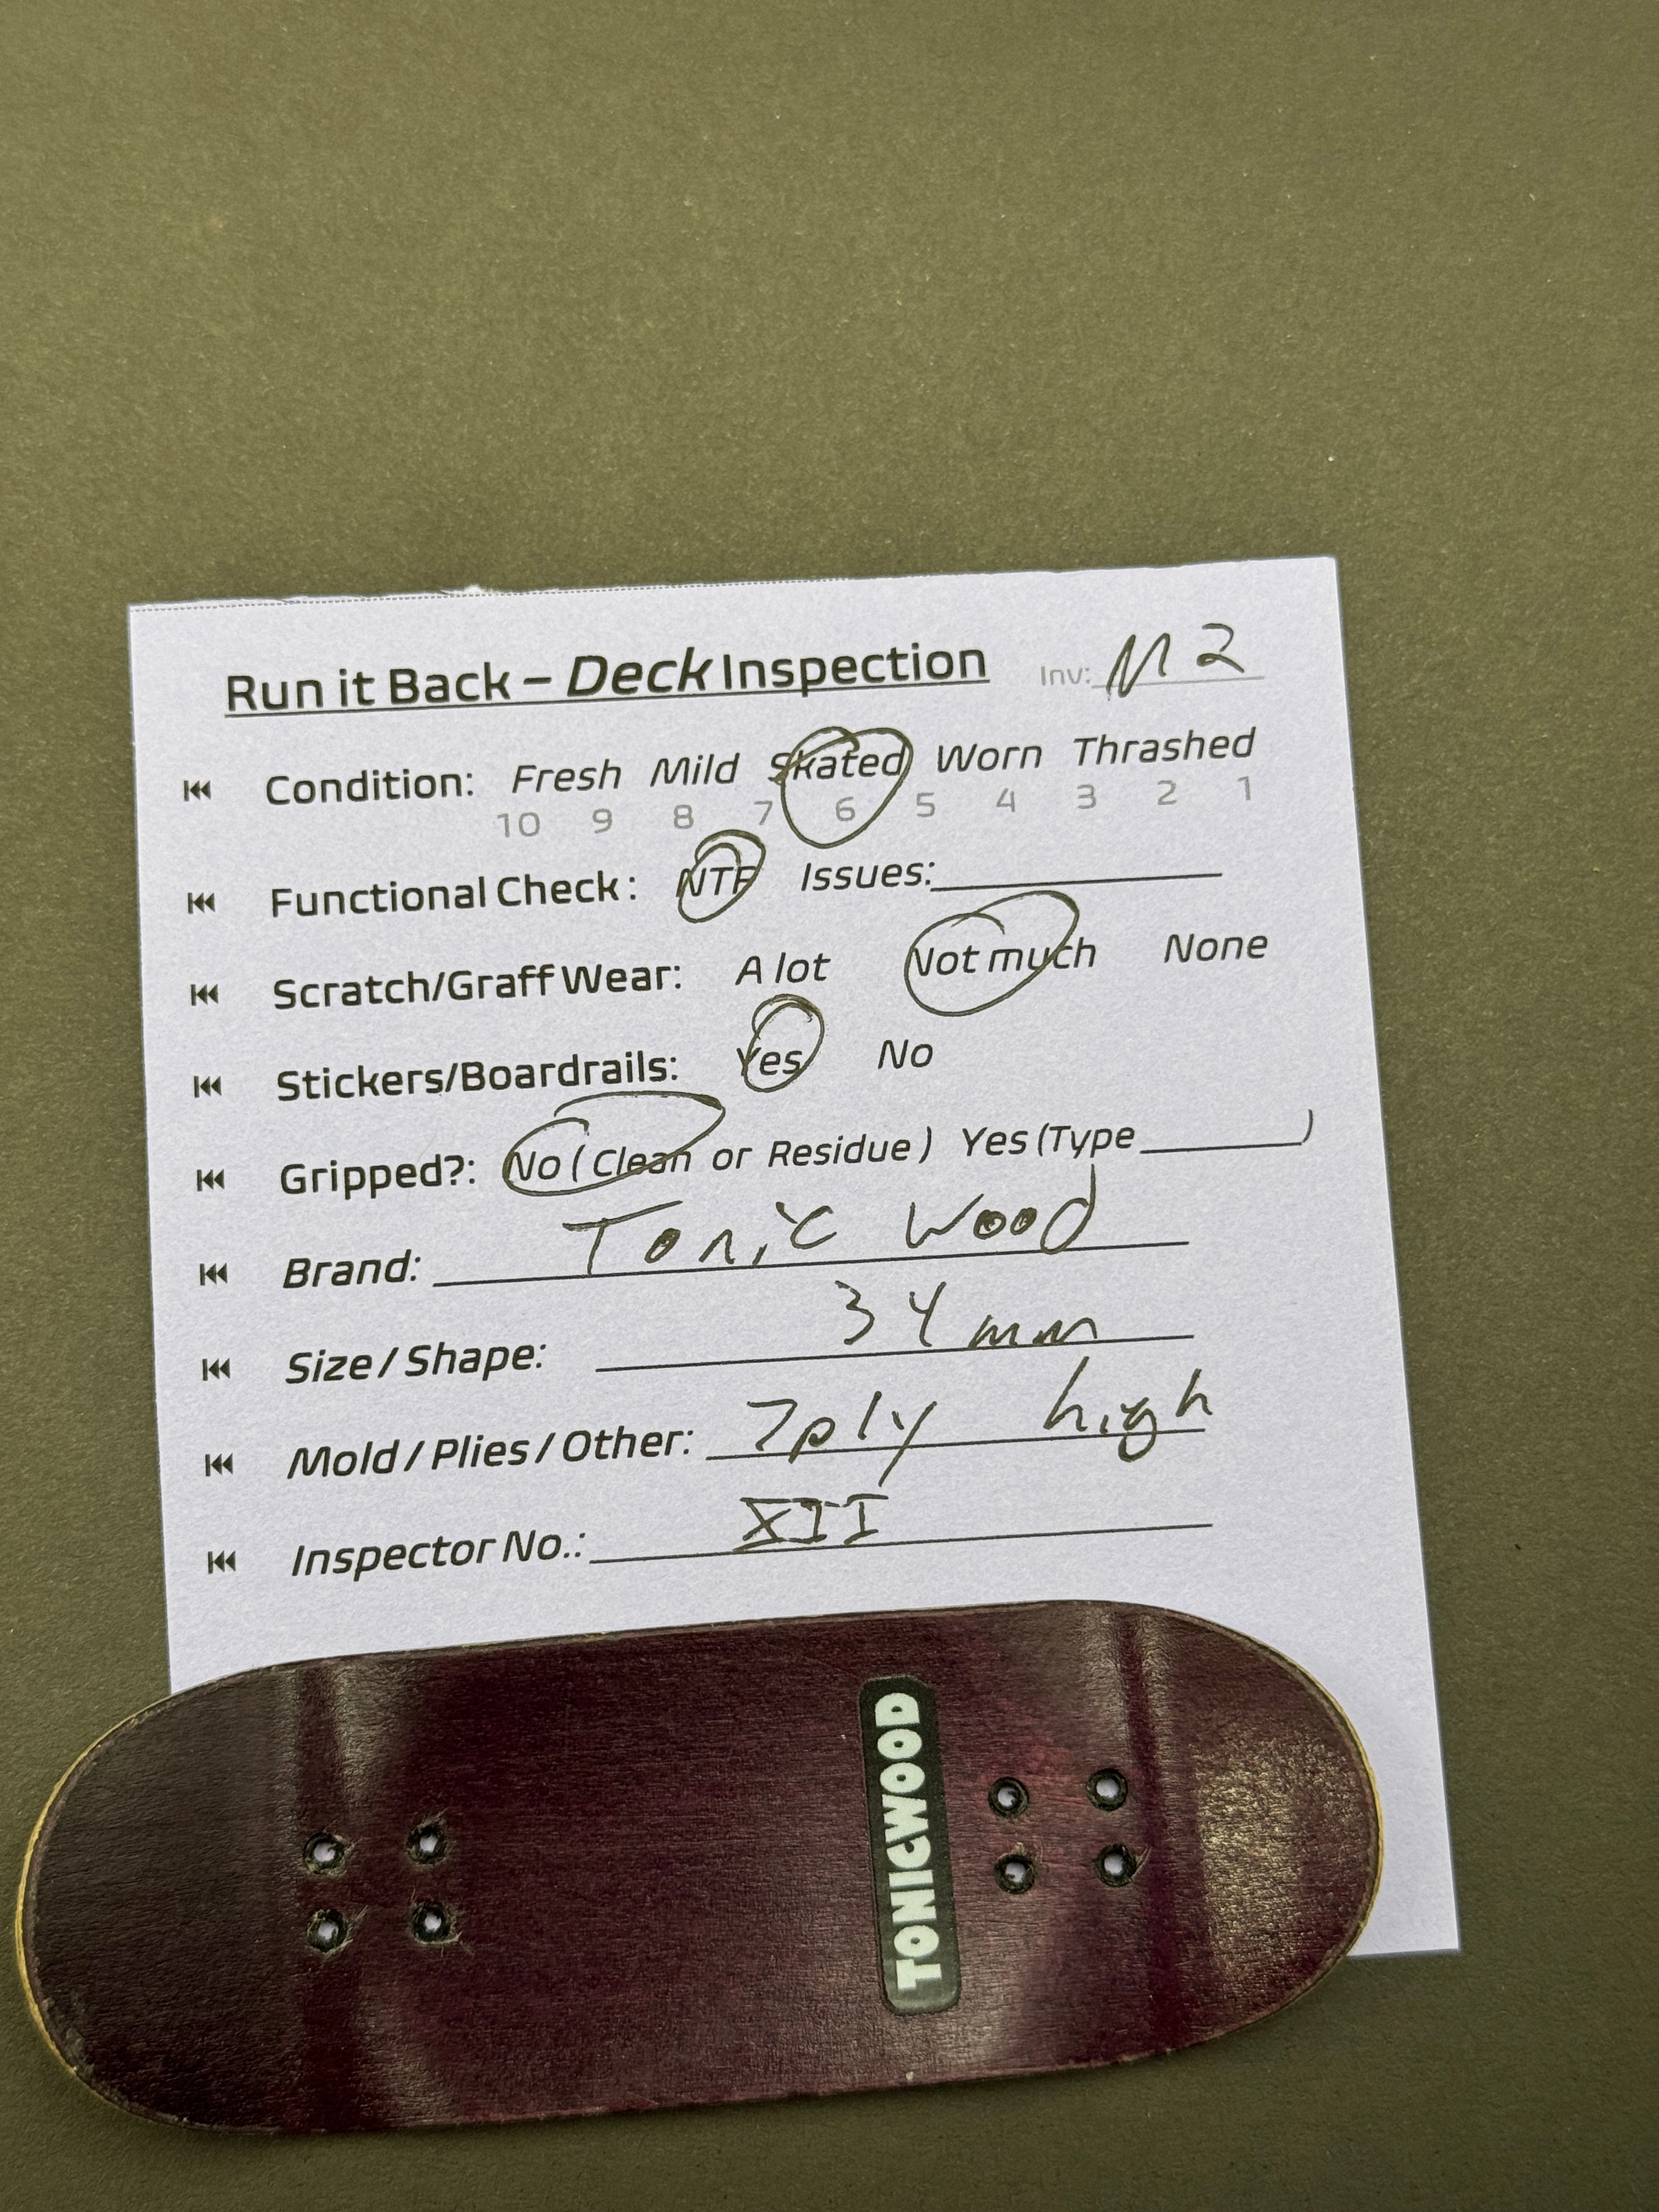 Run it Back – Deck Inspection Inv: M2
Condition: Fresh Mild Skated Worn Thrashed
10 9 8 7 6 5 4 3 2 1
Functional Check: NTF Issues:
Scratch/Graff Wear: A lot Not much None
Stickers/Boardrails: Yes No
Gripped?: No (Clean or Residue) Yes (Type )
Brand: Tonic Wood
Size / Shape: 34mm
Mold / Plies / Other: 7ply high
Inspector No.: XII
TONICWOOD